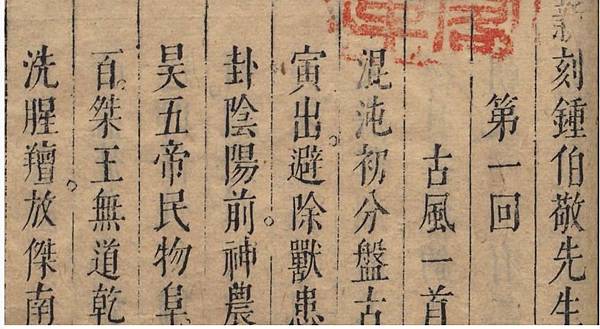 新刻鍾伯敬先生
第一回
古風一首
混沌初分盤古
寅出。避除獸患
卦陰陽前。神農
昊五帝民物阜
百。桀王無道乾
洗腥羶。放傑南